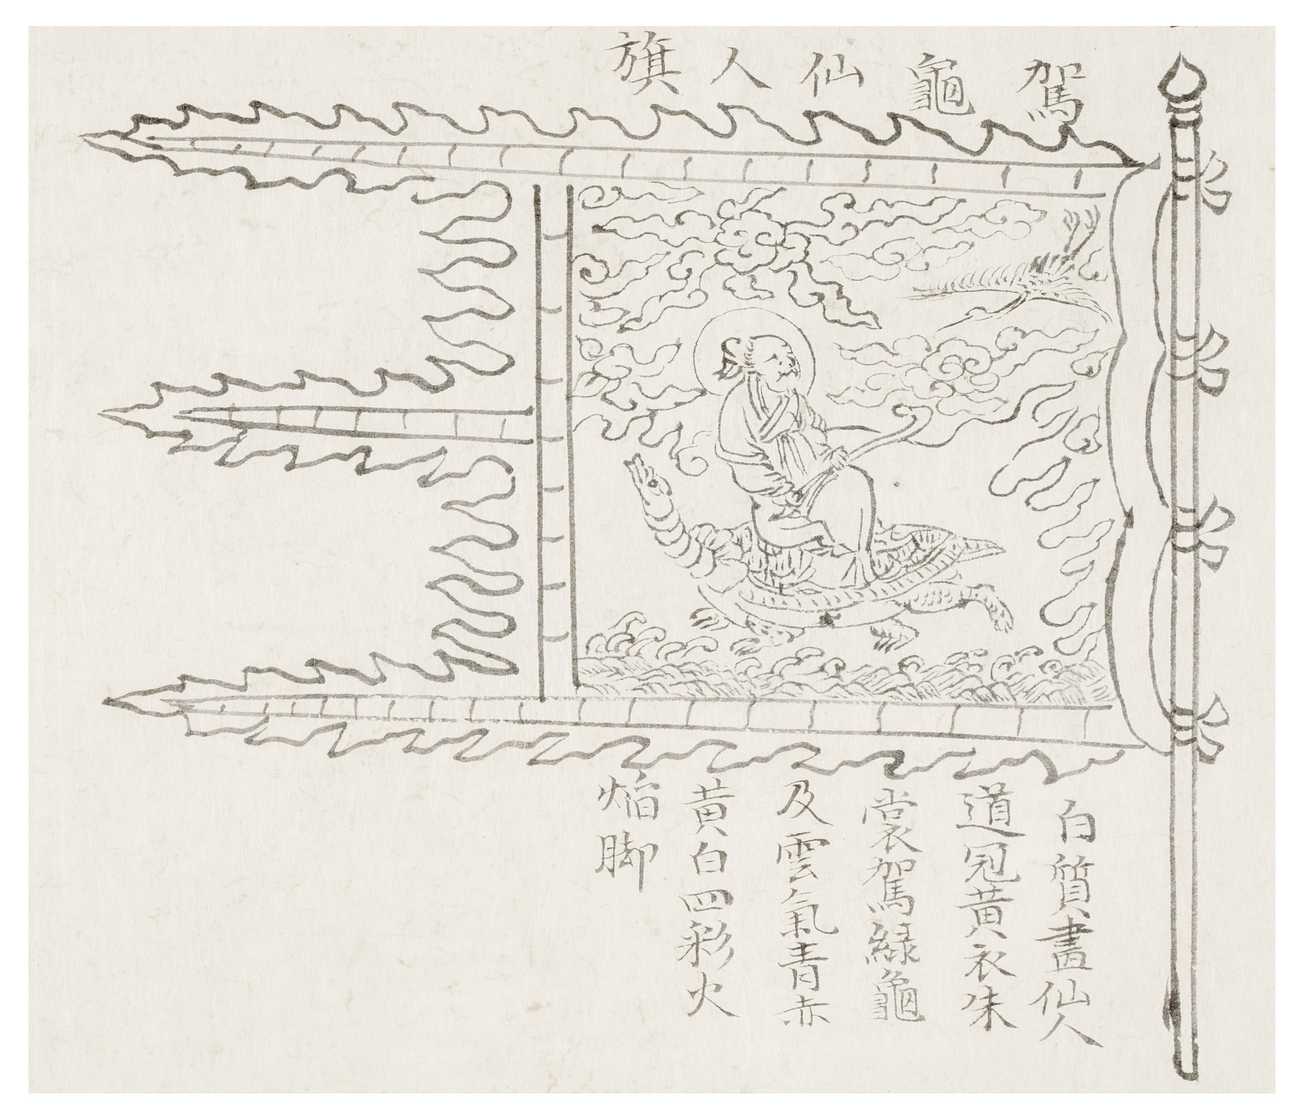 駕龜仙人旗
白質畫仙人
道冠黃衣朱
裳駕綠龜
及雲氣青赤
黃白四彩火
焰脚